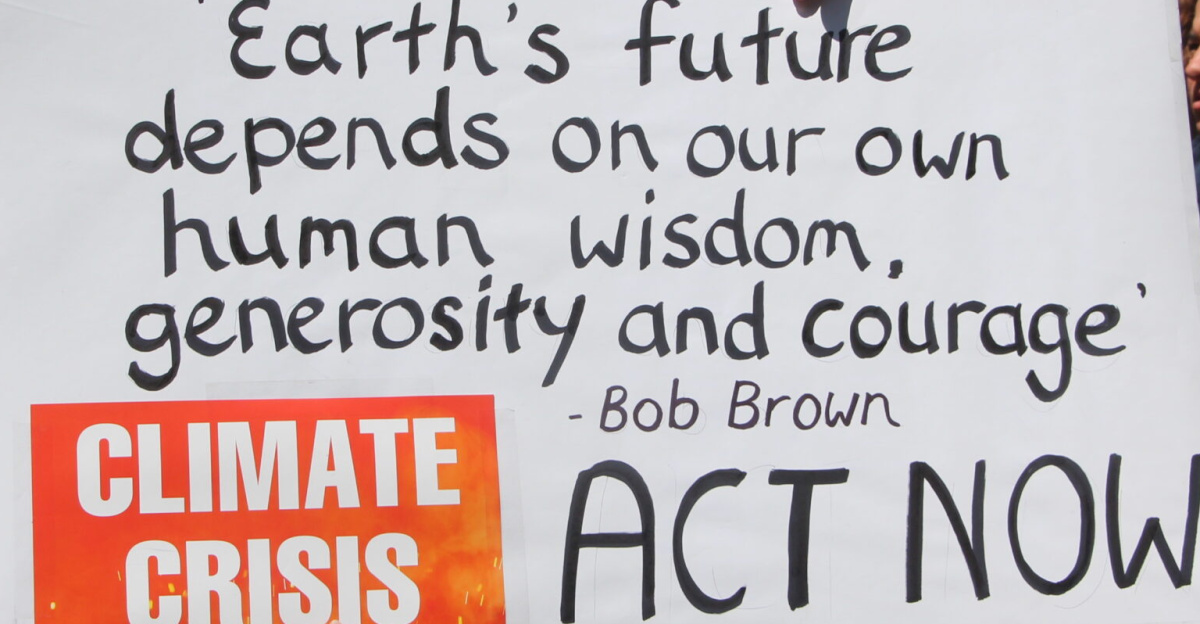 'Earth's future
depends on our own
human wisdom,
generosity and courage'
- Bob Brown
CLIMATE
CRISIS
ACT NOW